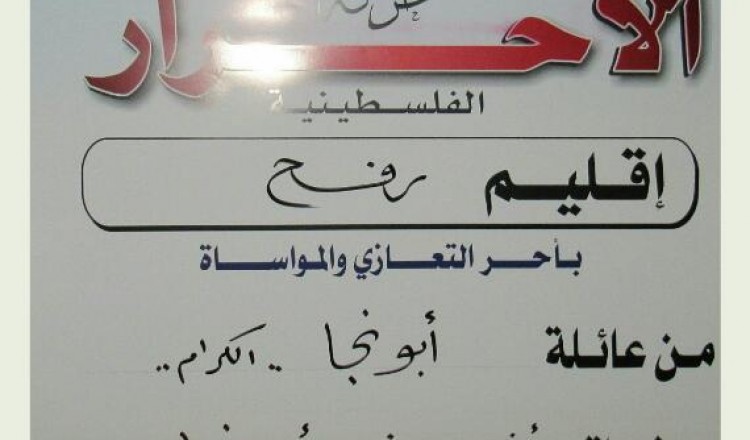 حركة الأحرار
الفلسطينية
إقليم رفح
بأحر التعازي والمواساة
من عائلة أبو نجا .. الكرام ..